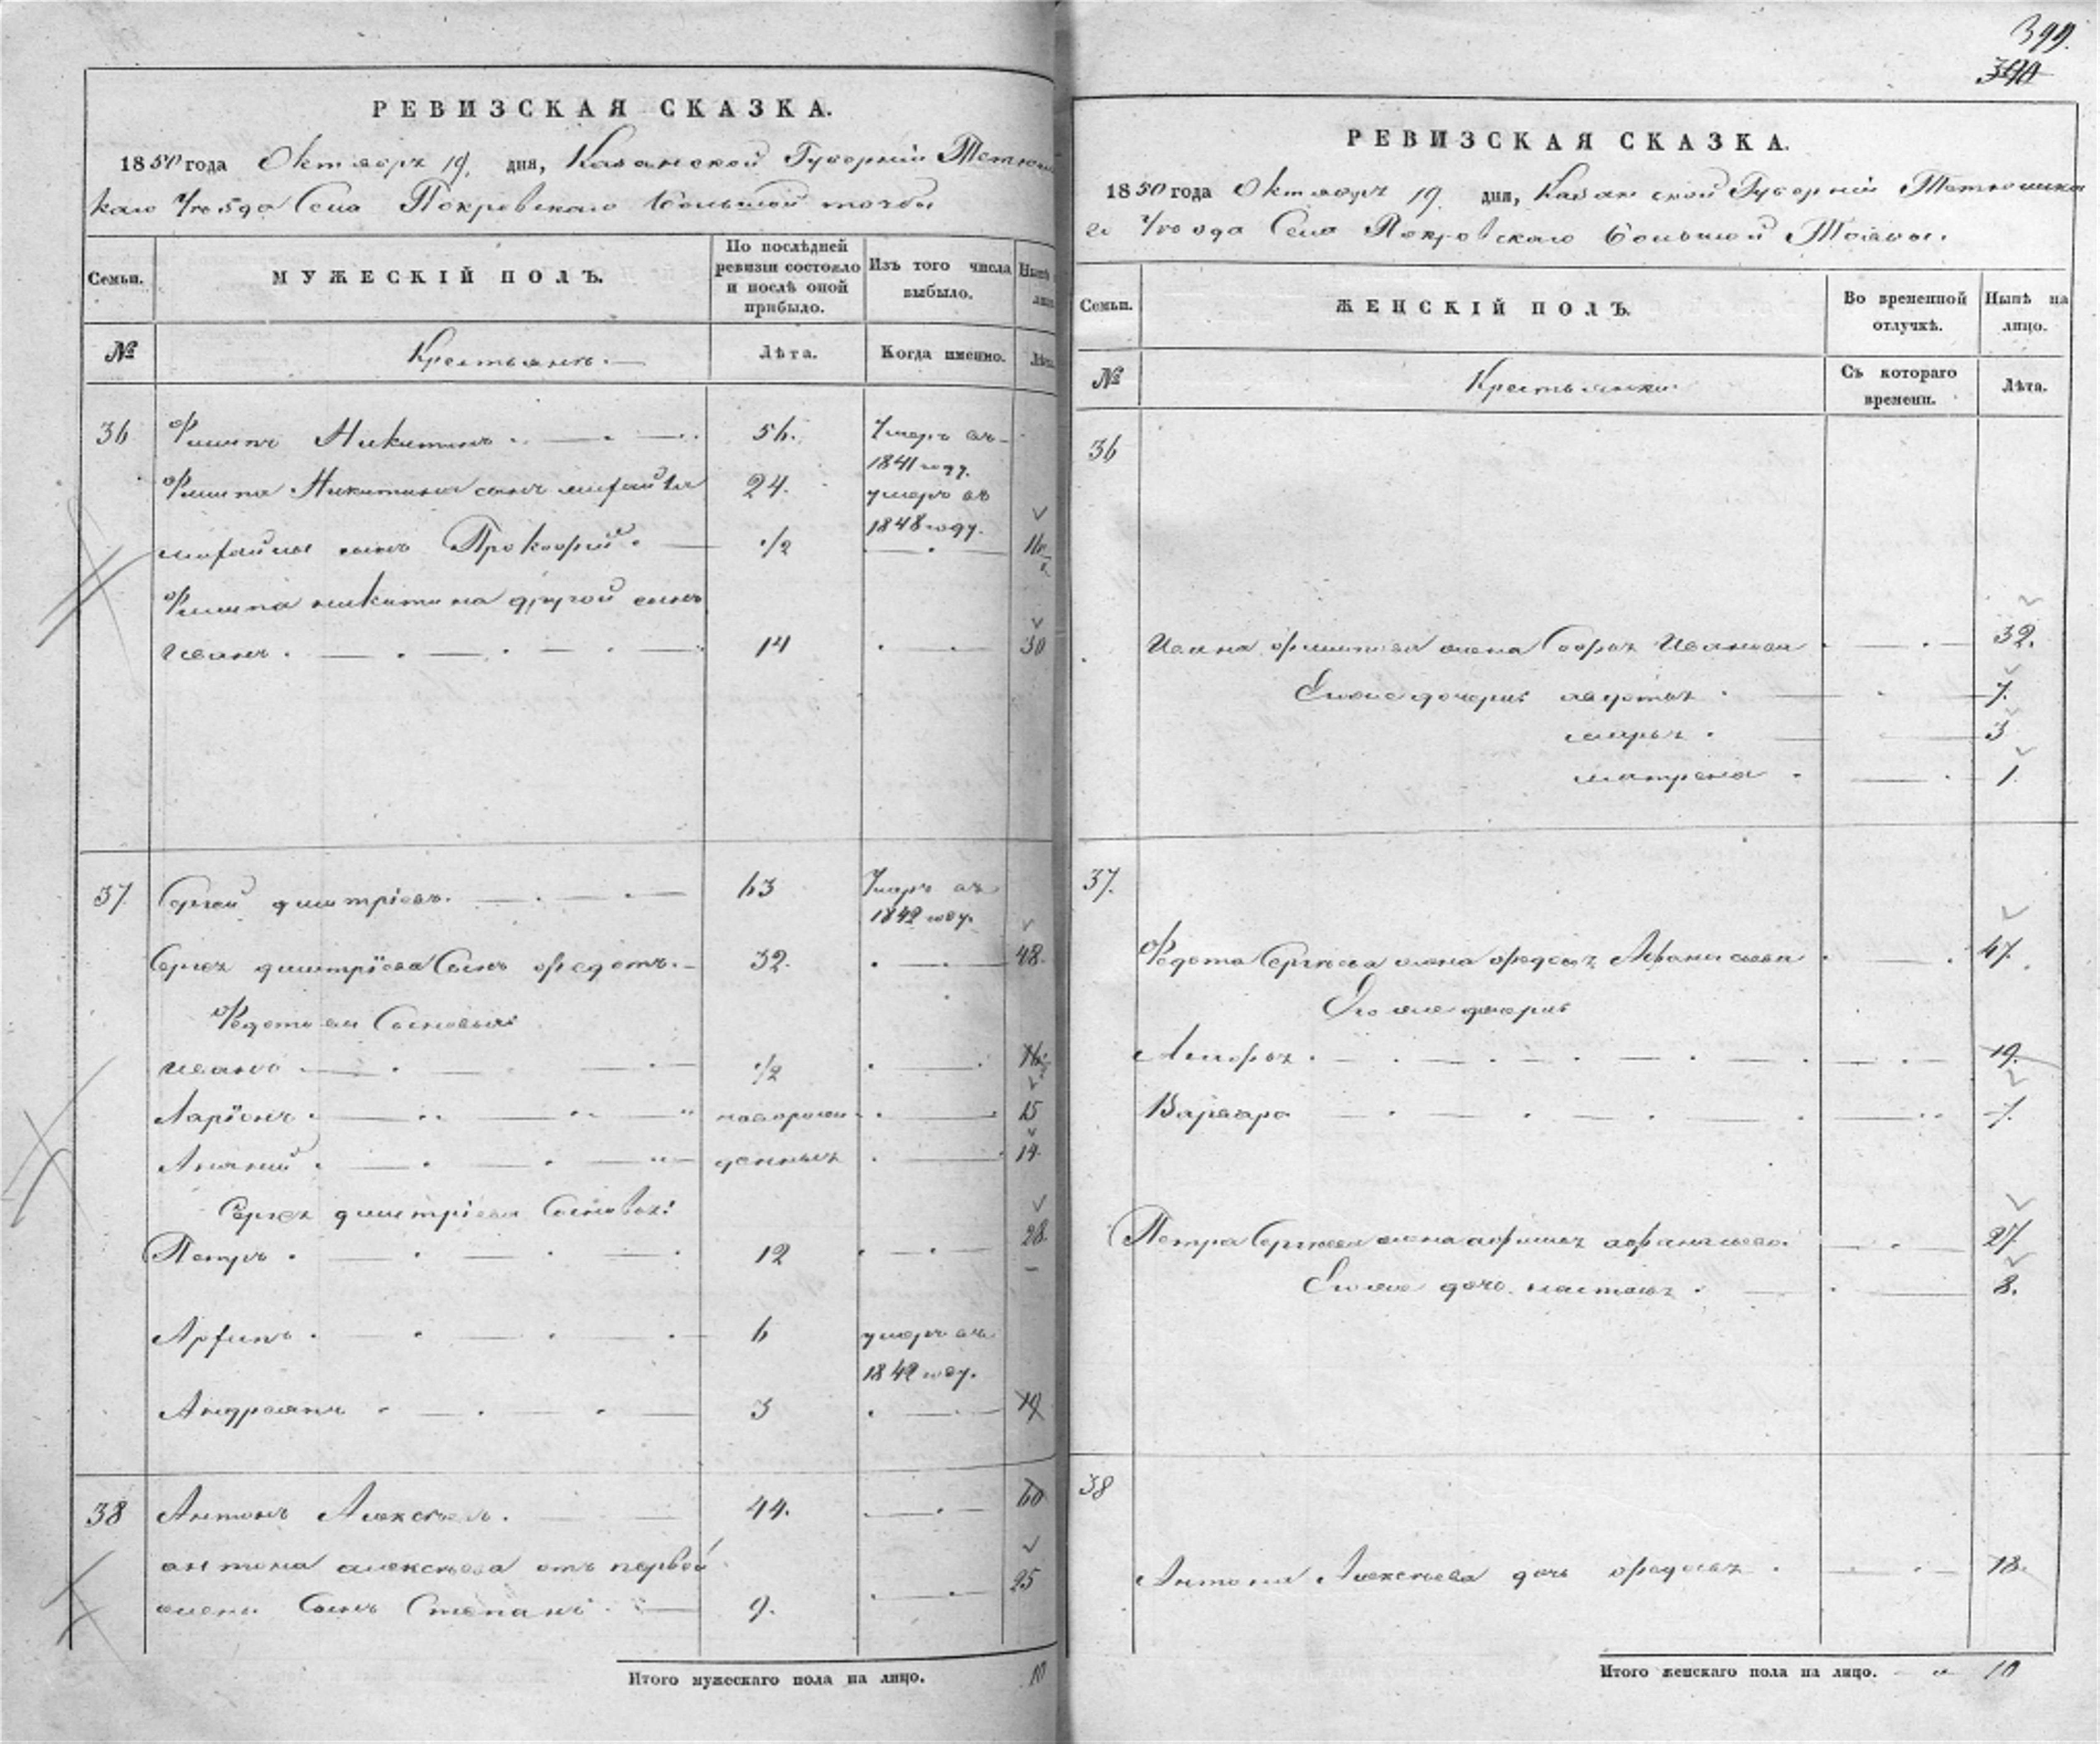 399.
390
РЕВИЗСКАЯ СКАЗКА.
1850 года Октября 19. дня, Казанской Губернiи Тетюш
каго уезда Села Покровскаго большой тоябы
Семьи.
МУЖЕСКІЙ ПОЛЪ.
По послѣдней ревизіи состояло и послѣ оной прибыло.
Изъ того числа выбыло.
№
Крестьянъ.
Лѣта.
Когда именно.
36 Филипъ Никитинъ 56. Умеръ въ
1841 году.
Филипа Никитина сынъ михайла 24. умеръ въ
1848 году.
михайлы сынъ Прокофий 1/2 16 1/2
Филипа никитина другой сынъ
Иванъ 14 30
37 Сергей дмитрiевъ. 63 Умеръ въ
1842 году.
Сергея дмитрiева Сынъ федотъ. 32. 48.
Федотовы Сыновья:
иванъ 1/2 16 1/2
Ларiонъ новорож 15
Ананий денныя 14
Сергея дмитрiева Сыновья:
Петръ 12 28
Архипъ 6 умеръ въ
1842 году.
Андреянъ 3 19
38 Антонъ Алексѣевъ. 44. 60
антона алексѣева отъ первой
жены Сынъ Степанъ 9. 25
Итого мужескаго пола на лицо. 10
РЕВИЗСКАЯ СКАЗКА.
1850 года Октября 19. дня, Казанской Губернiи Тетюшска
го уезда Села Покровскаго большой Тоябы.
Семьи.
ЖЕНСКІЙ ПОЛЪ.
Во временной отлучкѣ.
Нынѣ на лицо.
№
Крестьянки
Съ котораго времени.
Лѣта.
36
Ивана филипова жена Софья Иванова 32.
Ево же дочери авдотья 7.
марья 3
матрена 1.
37.
Федота Сергѣева жена федосья Афанасьева 47.
Ево же дочери
19.
Варвара 7.
Петра Сергѣева жена афимья афанасьева 27
Ево же дочь настасья 8.
38
Антона Алексѣева дочь федосья 18.
Итого женскаго пола на лицо. 10